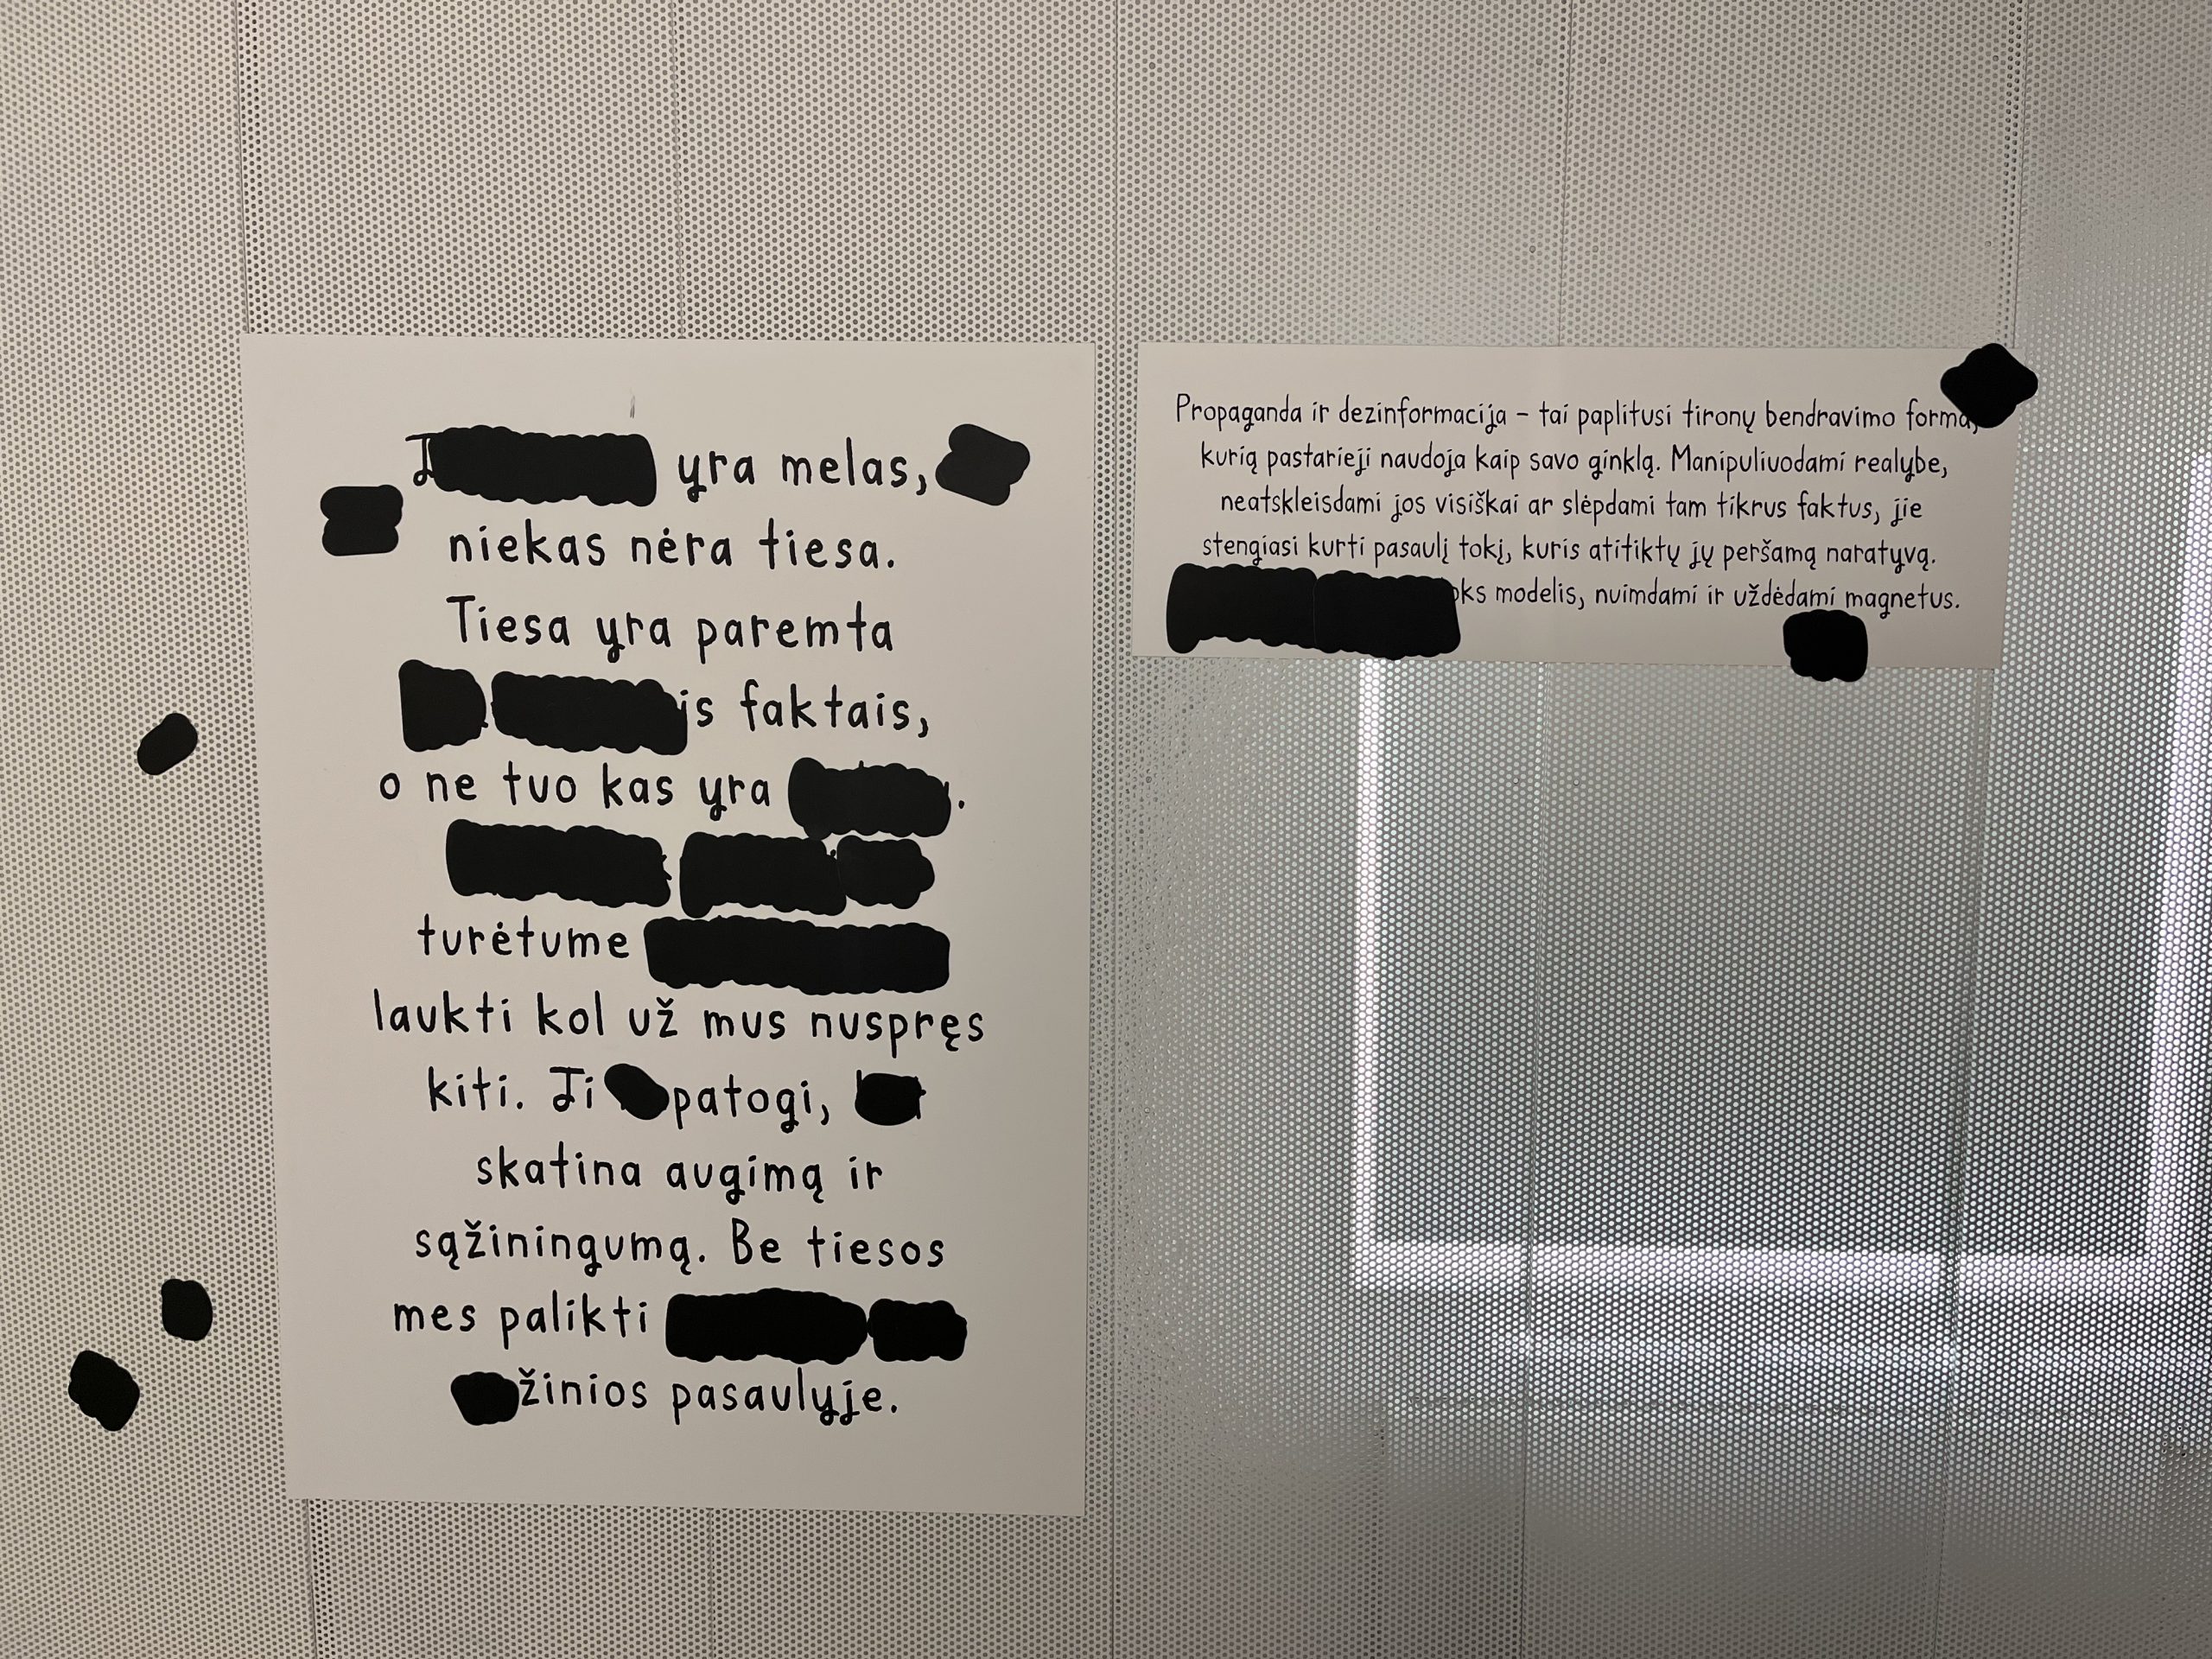 yra melas,
niekas nėra tiesa.
Tiesa yra paremta
faktais,
o ne tuo kas yra
turėtume
laukti kol už mus nuspręs
kiti. Ji patogi,
skatina augimą ir
sąžiningumą. Be tiesos
mes palikti
žinios pasaulyje.
Propaganda ir dezinformacija – tai paplitusi tironų bendravimo forma,
kurią pastarieji naudoja kaip savo ginklą. Manipuliuodami realybe,
neatskleisdami jos visiškai ar slėpdami tam tikrus faktus, jie
stengiasi kurti pasaulį tokį, kuris atitiktų jų peršamą naratyvą.
modelis, nuimdami ir uždėdami magnetus.